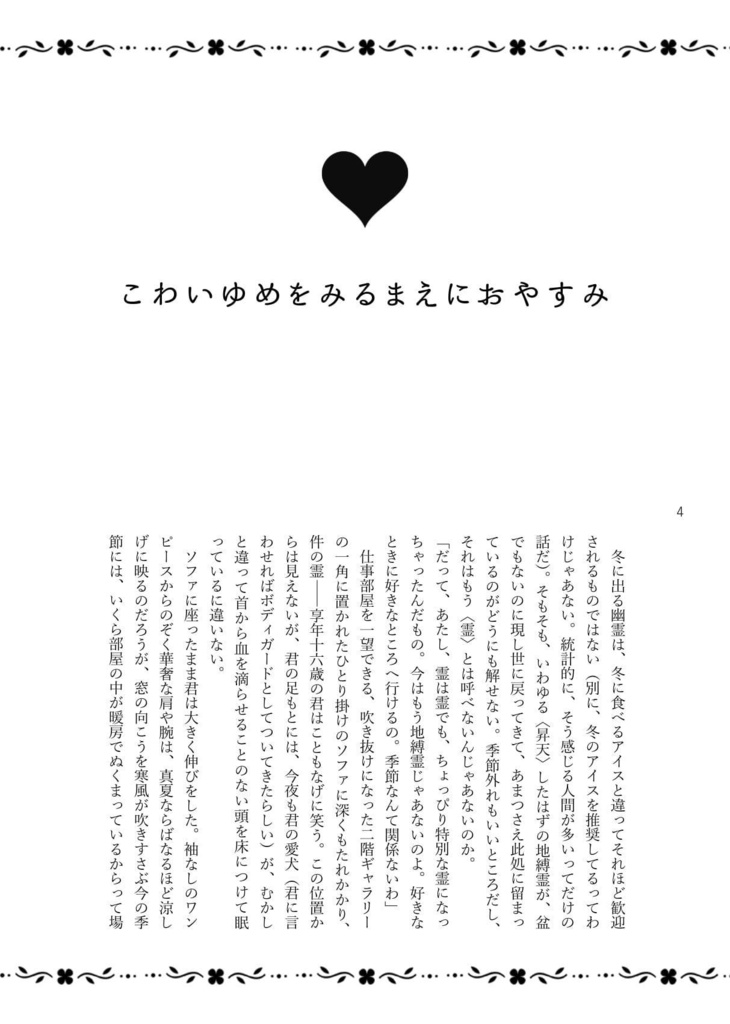 こわいゆめをみるまえにおやすみ
4
冬に出る幽霊は、冬に食べるアイスと違ってそれほど歓迎
されるものではない（別に、冬のアイスを推奨してるってわ
けじゃあない。統計的に、そう感じる人間が多いってだけの
話だ）。そもそも、いわゆる〈昇天〉したはずの地縛霊が、盆
でもないのに現し世に戻ってきて、あまつさえ此処に留まっ
ているのがどうにも解せない。季節外れもいいところだし、
それはもう〈霊〉とは呼べないんじゃあないのか。
「だって、あたし、霊は霊でも、ちょっぴり特別な霊になっ
ちゃったんだもの。今はもう地縛霊じゃあないのよ。好きな
ときに好きなところへ行けるの。季節なんて関係ないわ」
仕事部屋を一望できる、吹き抜けになった二階ギャラリー
の一角に置かれたひとり掛けのソファに深くもたれかかり、
件の霊――享年十六歳の君はこともなげに笑う。この位置か
らは見えないが、君の足もとには、今夜も君の愛犬（君に言
わせればボディガードとしてついてきたらしい）が、むかし
と違って首から血を滴らせることのない頭を床につけて眠
っているに違いない。
ソファに座ったまま君は大きく伸びをした。袖なしのワン
ピースからのぞく華奢な肩や腕は、真夏ならばなるほど涼し
げに映るのだろうが、窓の向こうを寒風が吹きすさぶ今の季
節には、いくら部屋の中が暖房でぬくまっているからって場